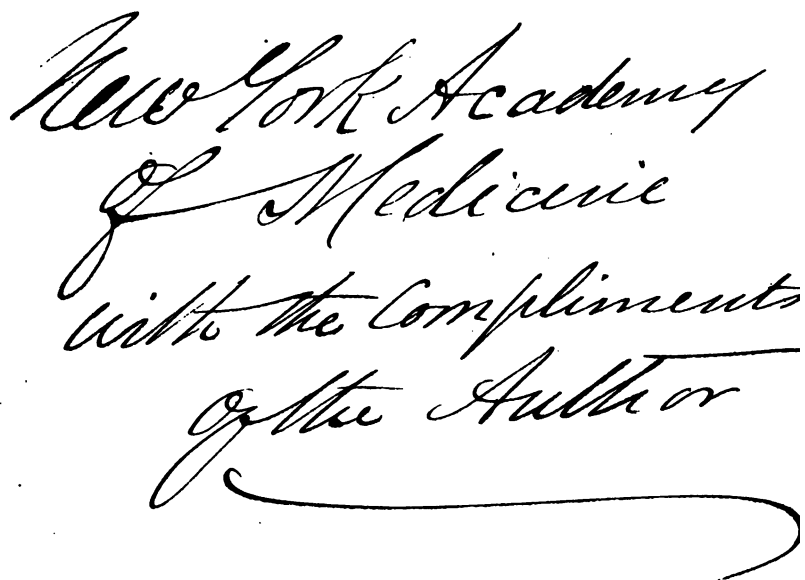 New York Academy
of Medicine
with the Compliments
of the Author